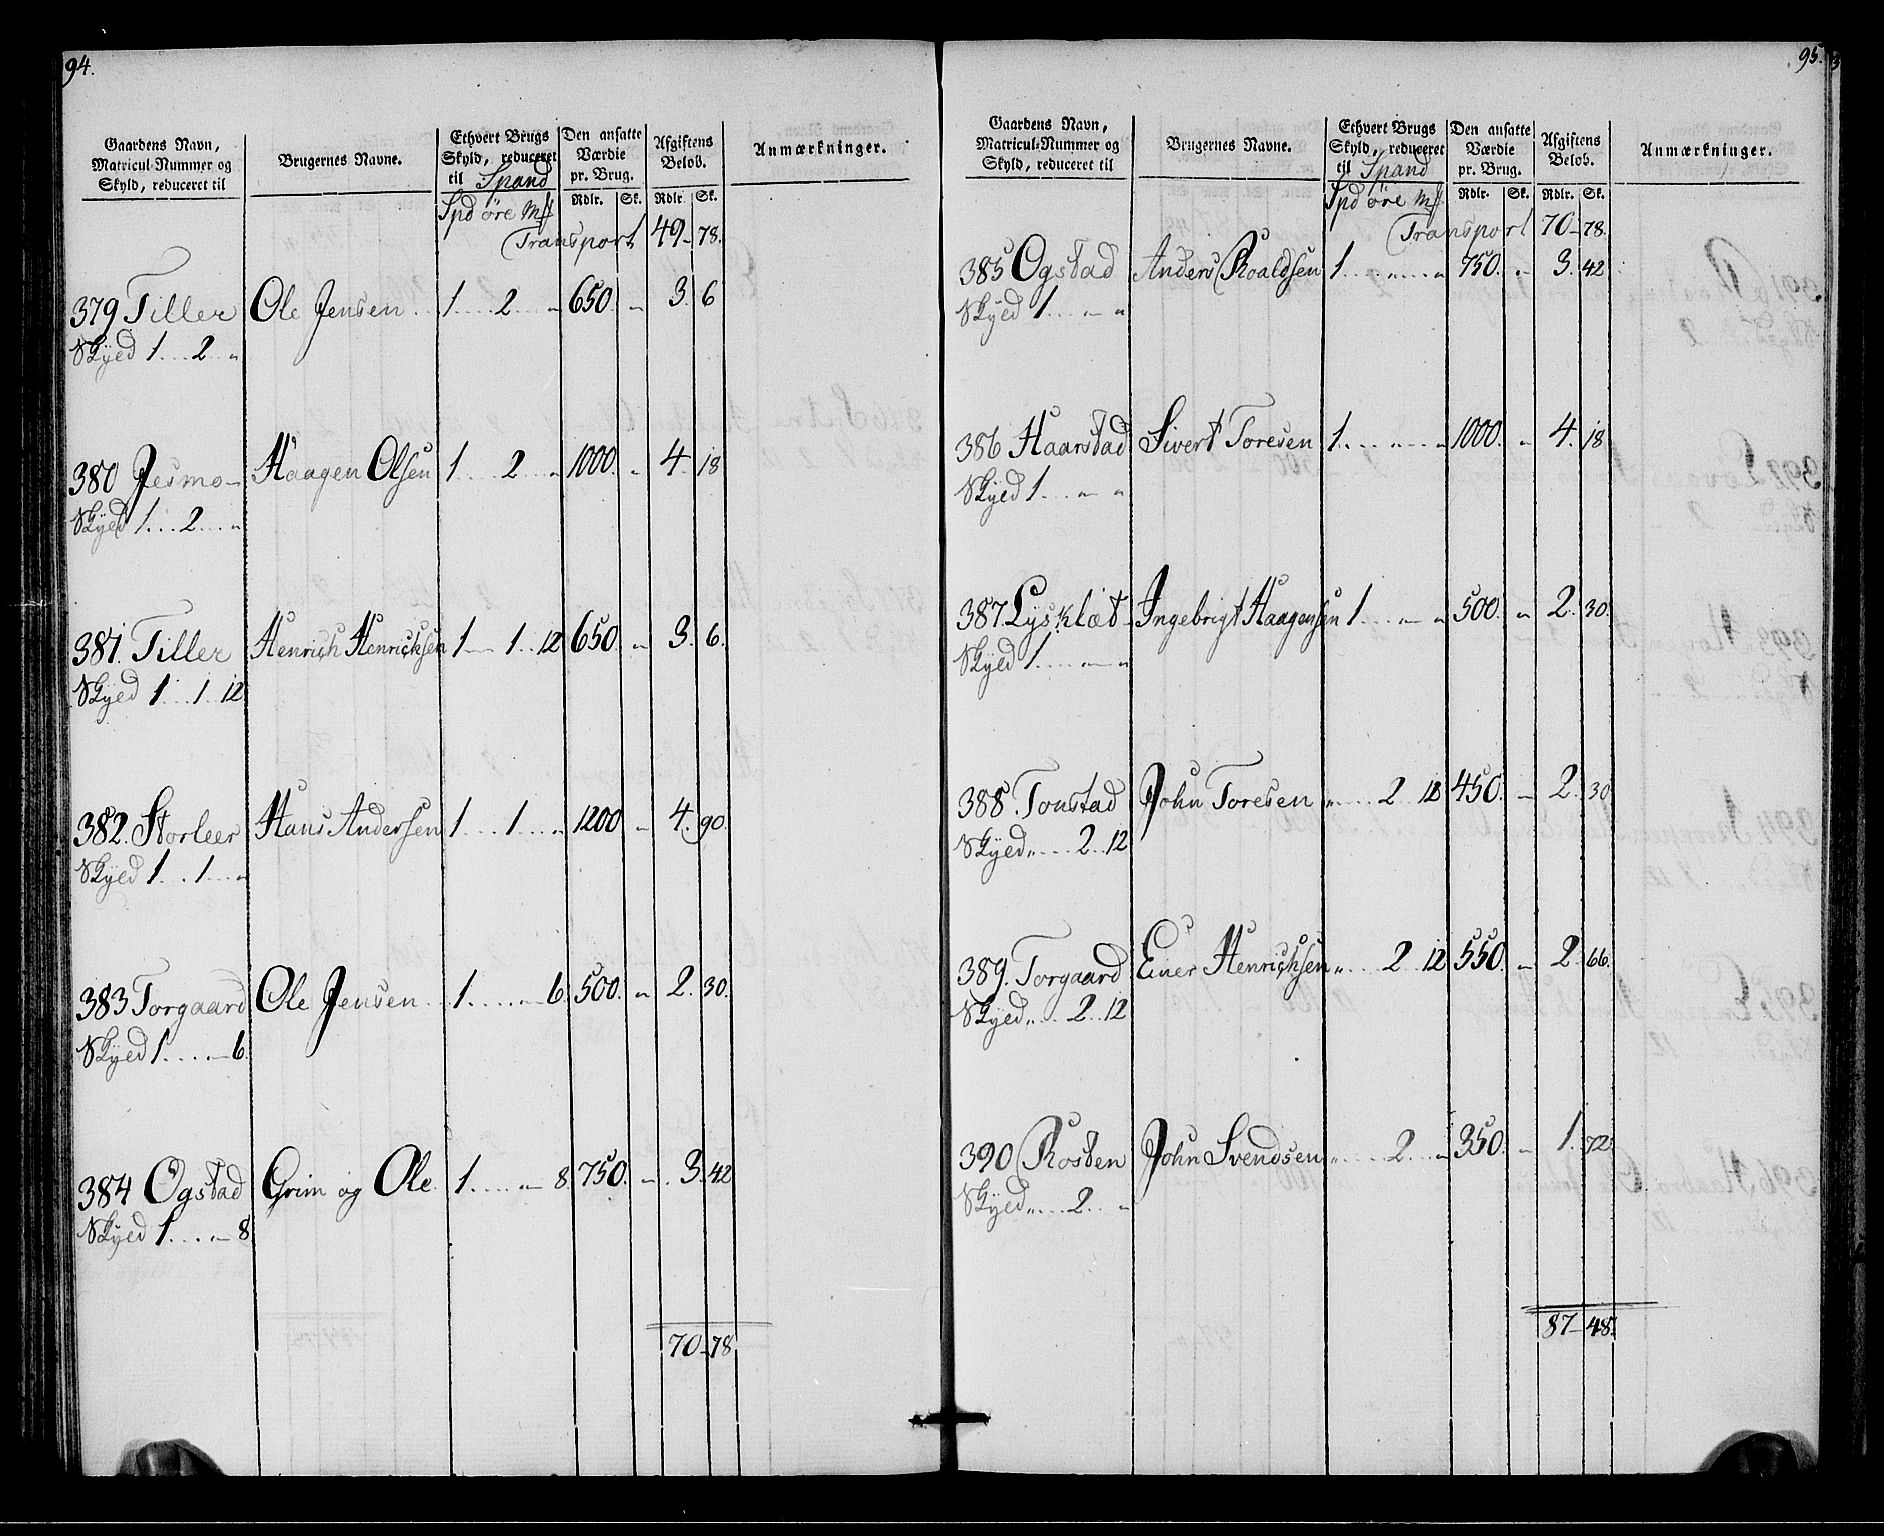 94.
Gaardens Navn, Matricul-Nummer og Skyld, reduceret til | Brugernes Navne. | Ethvert Brugs Skyld, reduceret til Spand | Den ansatte Værdie pr. Brug. | Afgiftens Beløb. | Anmærkninger.
Spd øre Mk | Rdlr. | Sk. | Rdlr. | Sk.
Transport 49 - 78.
379 Tiller | Ole Jensen | 1 . . 2 . . " | 650. | " | 3. | 6
Skyed 1 . . . 2 . . "
380 Jesmo | Haagen Olsen | 1 . . 2 . . " | 1000. | " | 4 | 18
Skyed 1 . . . 2 . . . "
381. Tiller | Henrich Henrichsen | 1 — 1 . . 12 | 650. | " | 3. | 6.
Skyed 1 . . . 1 . . 12
382. Storleer | Hans Andersen | 1 . . . 1 . . . " | 1200 | " | 4. | 90.
Skyed 1 . . . 1 . . . "
383 Torgaard | Ole Jensen | 1 . . . . " — 6. | 500. | " | 2. | 30.
Skyed 1 . . . . " — 6.
384 Ogstad | Grim og Ole | 1 . . . . " — 8. | 750. | " | 3. | 42
Skyed 1 . . . . " — 8
70 - 78
95.
Gaardens Navn, Matricul-Nummer og Skyld, reduceret til | Brugernes Navne. | Ethvert Brugs Skyld, reduceret til Spand | Den ansatte Værdie pr. Brug. | Afgiftens Beløb. | Anmærkninger.
Spd øre Mk | Rdlr. | Sk. | Rdlr. | Sk.
Transport 70 - 78.
385 Ogstad | Anders Roaldsen | 1 . . . " . . . " | 750. | " | 3. | 42
Skyed 1 . . . " . . "
386 Haarstad | Sivert Toresen | 1 . . . " . . . " | 1000. | " | 4. | 18
Skyed 1 . . . " . . "
387 Lysklæt | Ingebrigt Haagensen | 1 . . . " . . " | 500. | " | 2. | 30.
Skyed 1 . . . . " . . "
388. Tonstad | John Toresen | " . . . . 2 . . 12 | 450. | " | 2. | 30
Skyed " . . . . 2 . . 12
389. Torgaard | Einer Henrichsen | " . . . . 2 . . 12 | 550. | " | 2. | 66.
Skyed " . . . . 2 . . 12
390 Rosten | John Svendsen | " . . . . 2 . . . " | 350. | " | 1. | 72.
Skyed " . . . . 2 . . "
87 - 48.